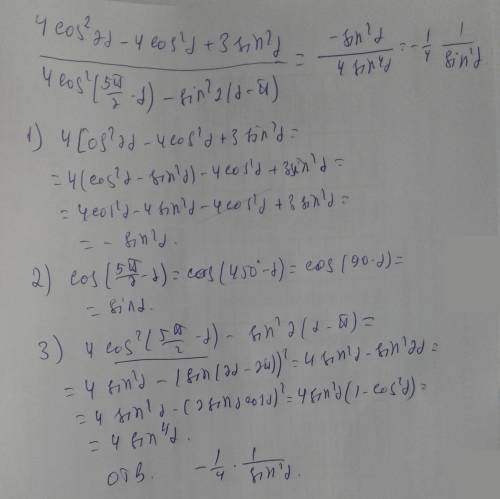 4 cos² 2α - 4 cos²α + 3 sin²α / 4 cos² (5π/2 - α) - sin² 2(α - π) = -sin²α / 4 sin⁴α = -1/4 1/sin²α
1) 4 cos² 2α - 4 cos²α + 3 sin²α =
= 4(cos²α - sin²α) - 4 cos²α + 3 sin²α =
= 4 cos²α - 4 sin²α - 4 cos²α + 3 sin²α =
= - sin²α.
2) cos (5π/2 - α) = cos (450° - α) = cos (90 - α) =
= sin α.
3) 4 cos² (5π/2 - α) - sin² 2(α - π) =
= 4 sin²α - (sin (2α - 2π))² = 4 sin²α - sin² 2α =
= 4 sin²α - (2 sin α cos α)² = 4 sin²α (1 - cos²α) =
= 4 sin⁴α.
Отв. -1/4 · 1/sin²α.